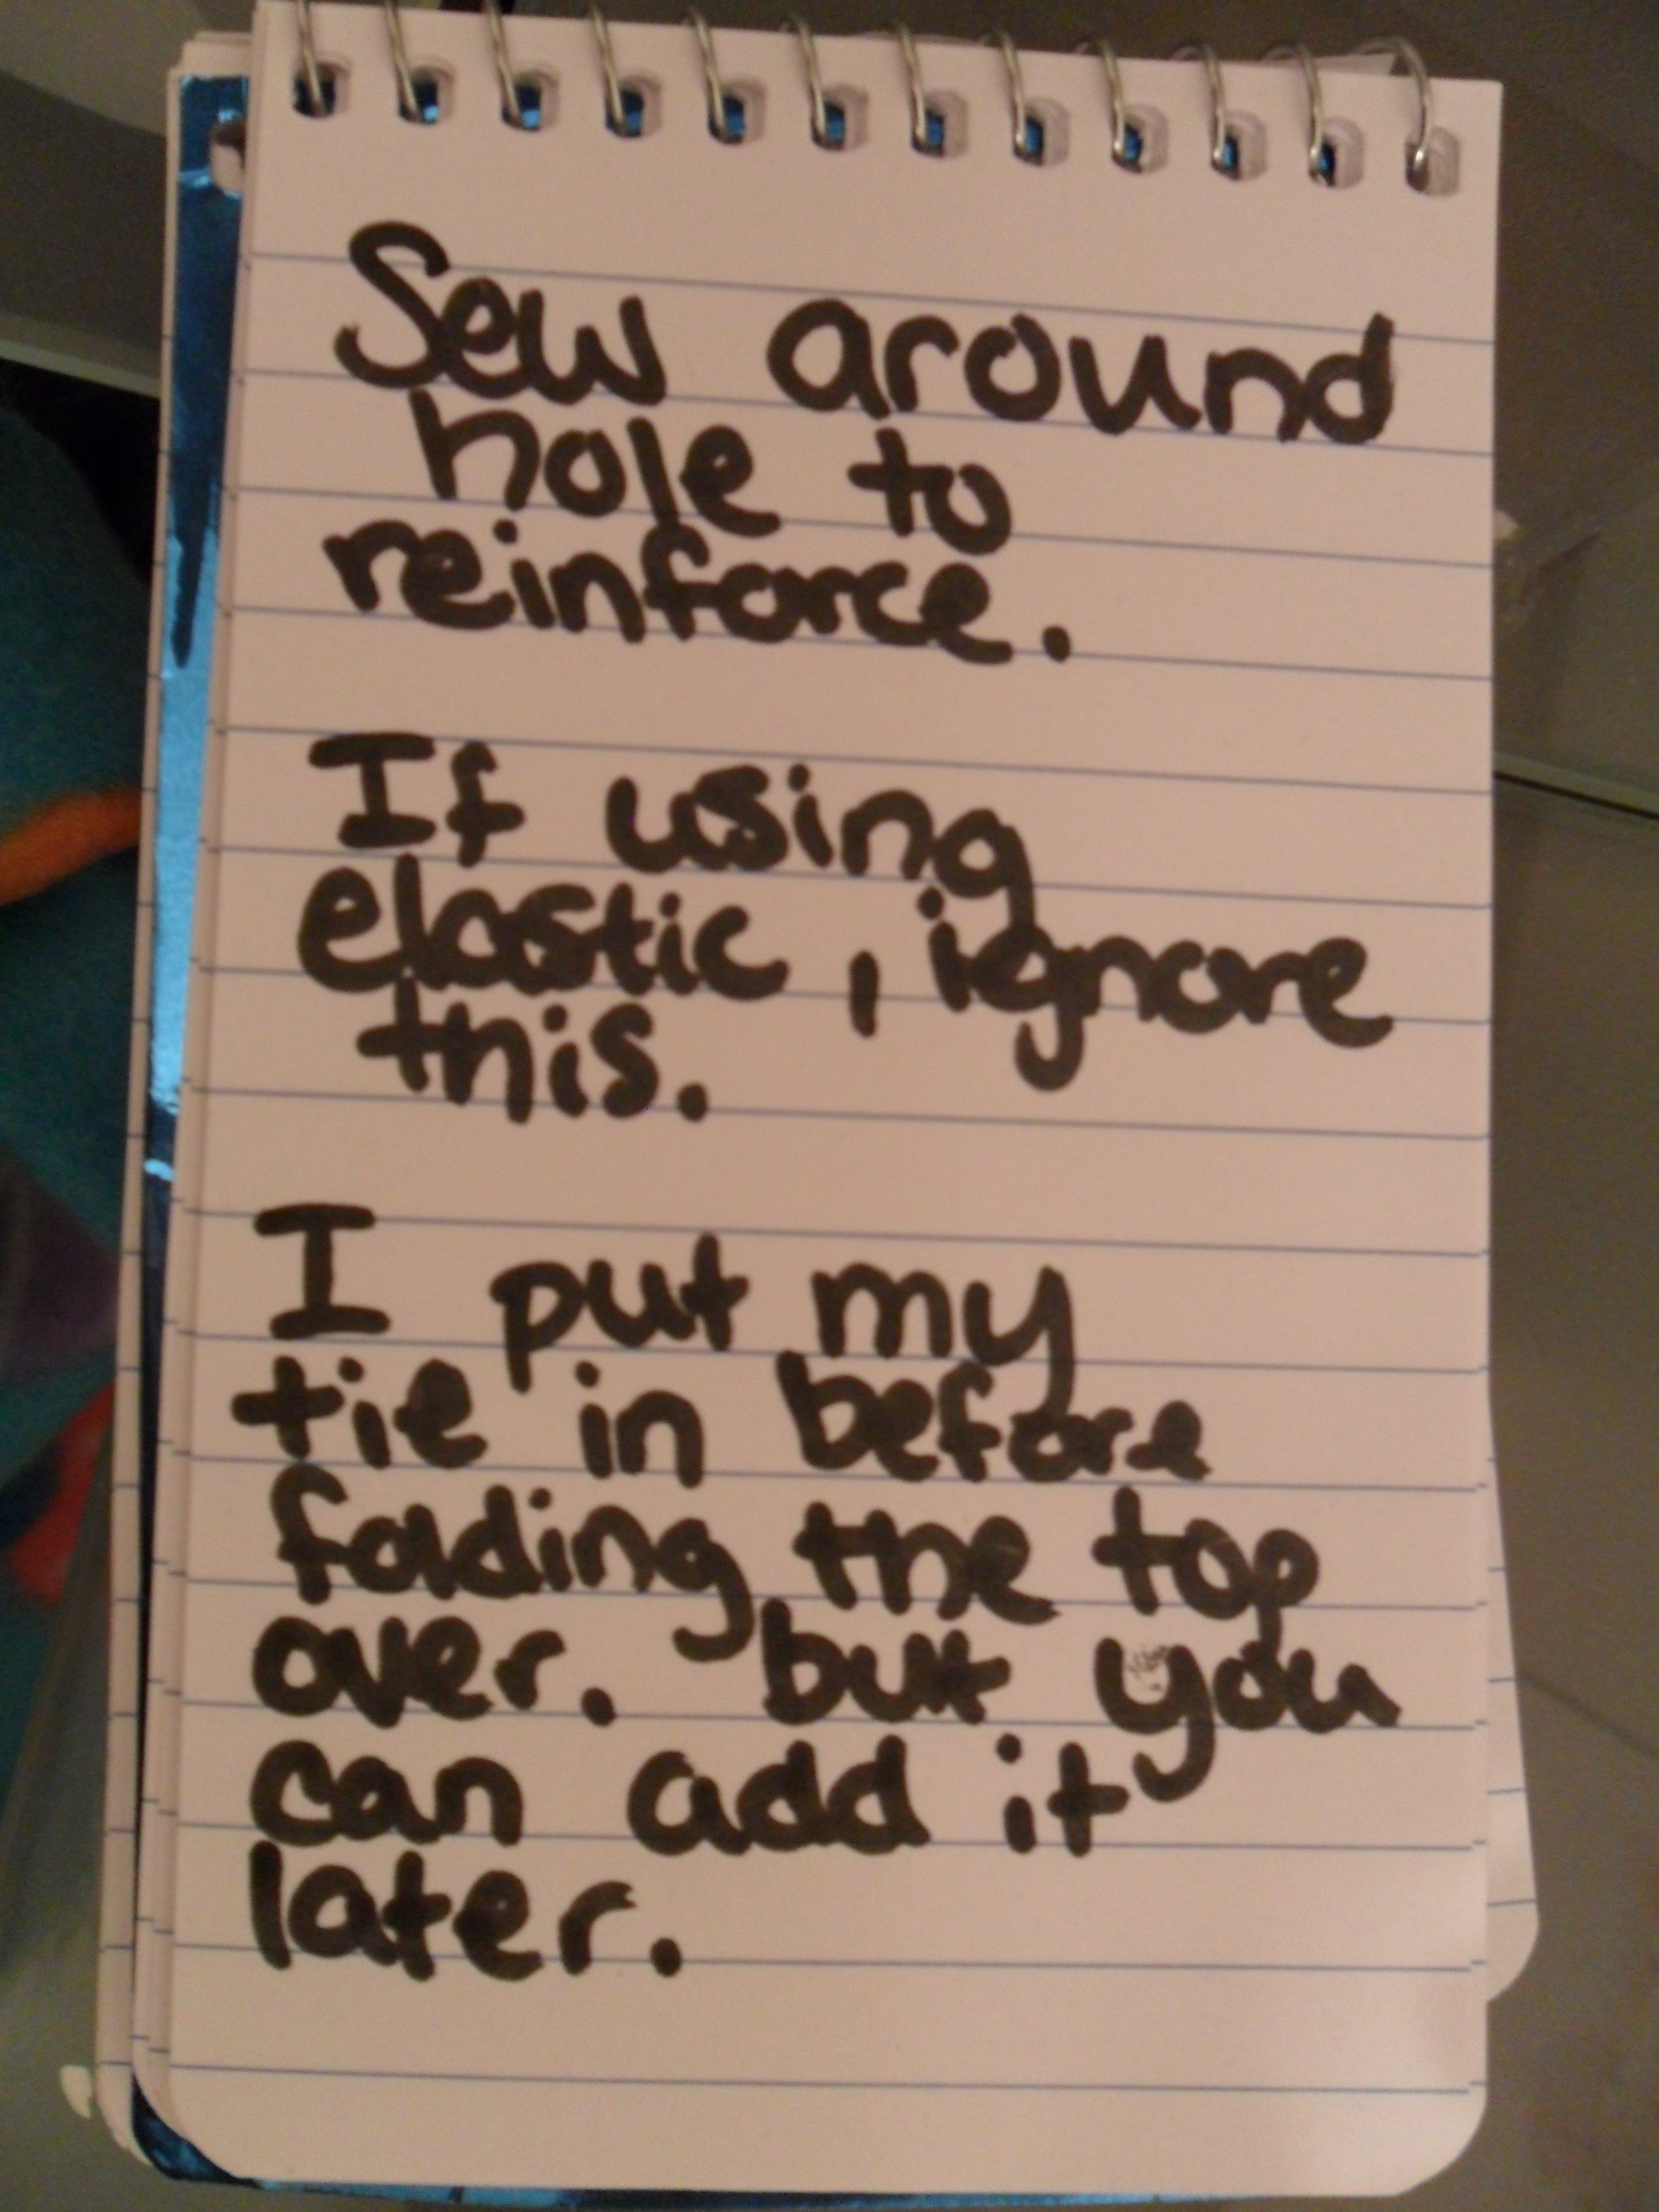 Sew around
hole to
reinforce.
If using
elastic, ignore
this.
I put my
tie in before
folding the top
over. but you
can add it
later.